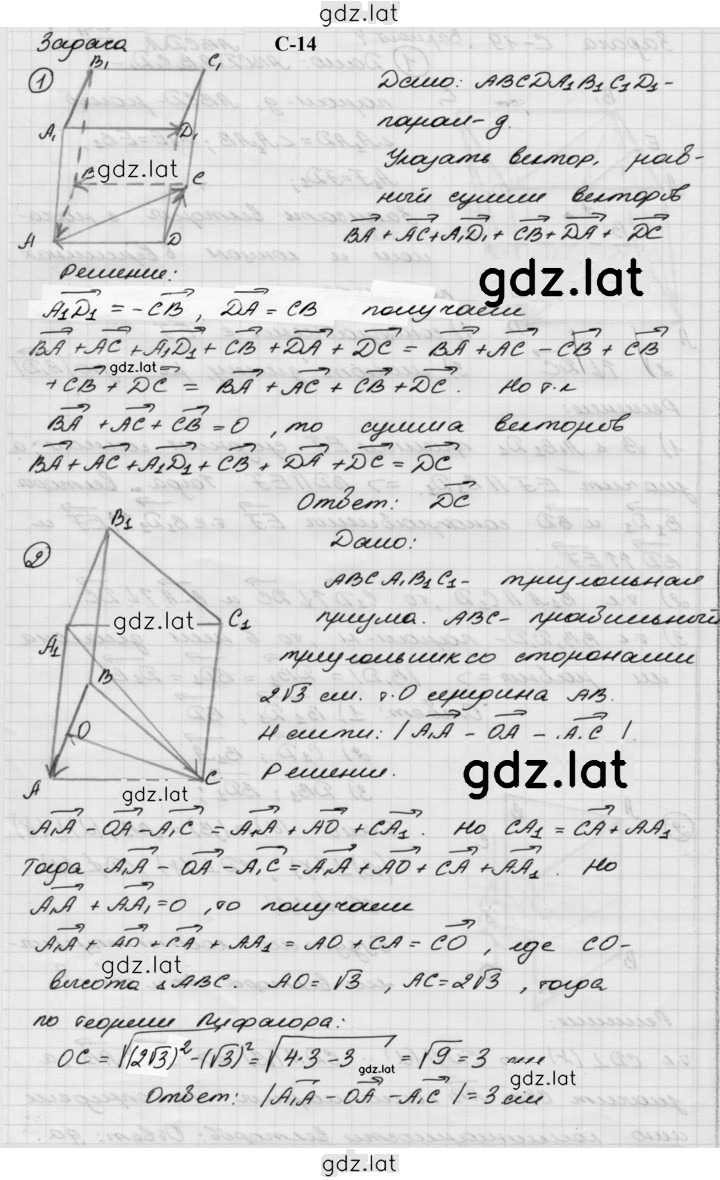 gdz.lat
Задача С-14
1
B₁ C₁
A₁ D₁
gdz.lat
C
A D
Дано: ABCDA₁B₁C₁D₁-
парал-д.
Указать вектор, рав-
ный сумме векторов
BA + AC + A₁D₁ + CB + DA + DC
gdz.lat
Решение:
A₁D₁ = -CB, DA = CB получаем
BA + AC + A₁D₁ + CB + DA + DC = BA + AC - CB + CB
gdz.lat
+ CB + DC = BA + AC + CB + DC. Но т.к
BA + AC + CB = 0, то сумма векторов
BA + AC + A₁D₁ + CB + DA + DC = DC
Ответ: DC
2
B₁
gdz.lat
C₁
A₁
B
O
A C
gdz.lat
Дано:
ABCA₁B₁C₁ - треугольная
призма. ABC - правильный
треугольник со сторонами
2√3 см. т.O середина AB.
Найти: |A₁A - OA - A₁C|.
Решение.
gdz.lat
A₁A - OA - A₁C = A₁A + AO + CA₁. Но CA₁ = CA + AA₁
Тогда A₁A - OA - A₁C = A₁A + AO + CA + AA₁. Но
A₁A + AA₁ = 0, то получаем
A₁A + AO + CA + AA₁ = AO + CA = CO, где CO-
gdz.lat
высота ▵ABC. AO = √3, AC = 2√3, тогда
по теореме Пифагора:
OC = √(2√3)² - (√3)² = √4·3 - 3 = √9 = 3 см
gdz.lat
gdz.lat
Ответ: |A₁A - OA - A₁C| = 3 см
gdz.lat